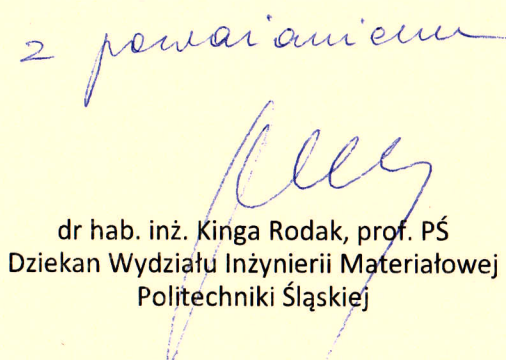 z poważaniem
dr hab. inż. Kinga Rodak, prof. PŚ
Dziekan Wydziału Inżynierii Materiałowej
Politechniki Śląskiej